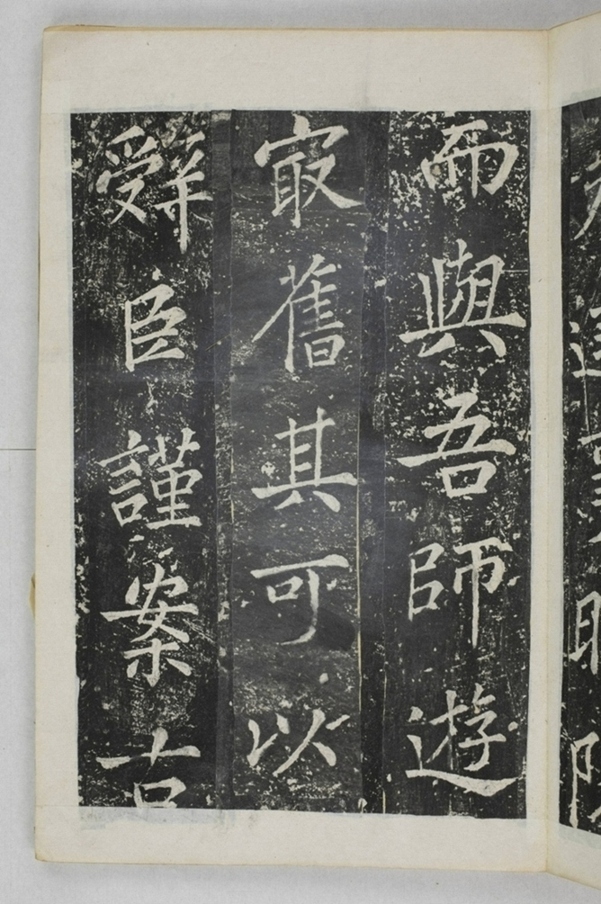 而與吾師遊
㝡舊其可以
辤臣謹案古